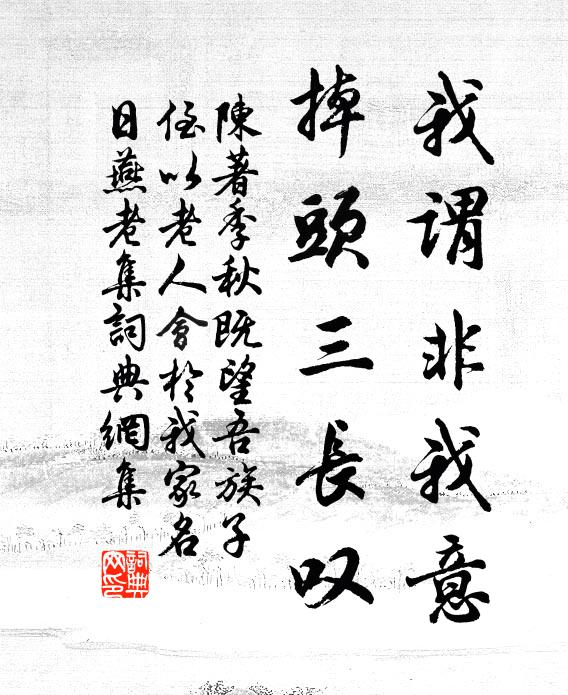 我謂非我意
掉頭三長叹
陳著季秋既望吾族子
侄以老人會於我家名
日燕老集詞典網集
詞典
网印